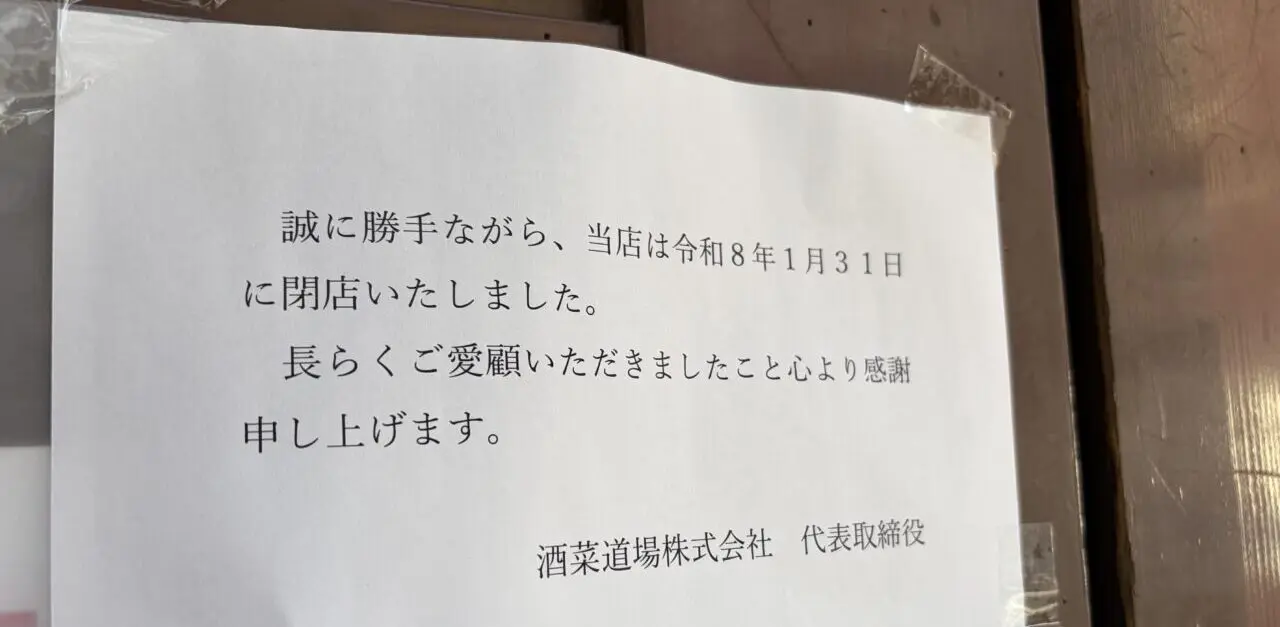 誠に勝手ながら、当店は令和８年１月３１日
に閉店いたしました。
長らくご愛顧いただきましたこと心より感謝
申し上げます。
酒菜道場株式会社　代表取締役